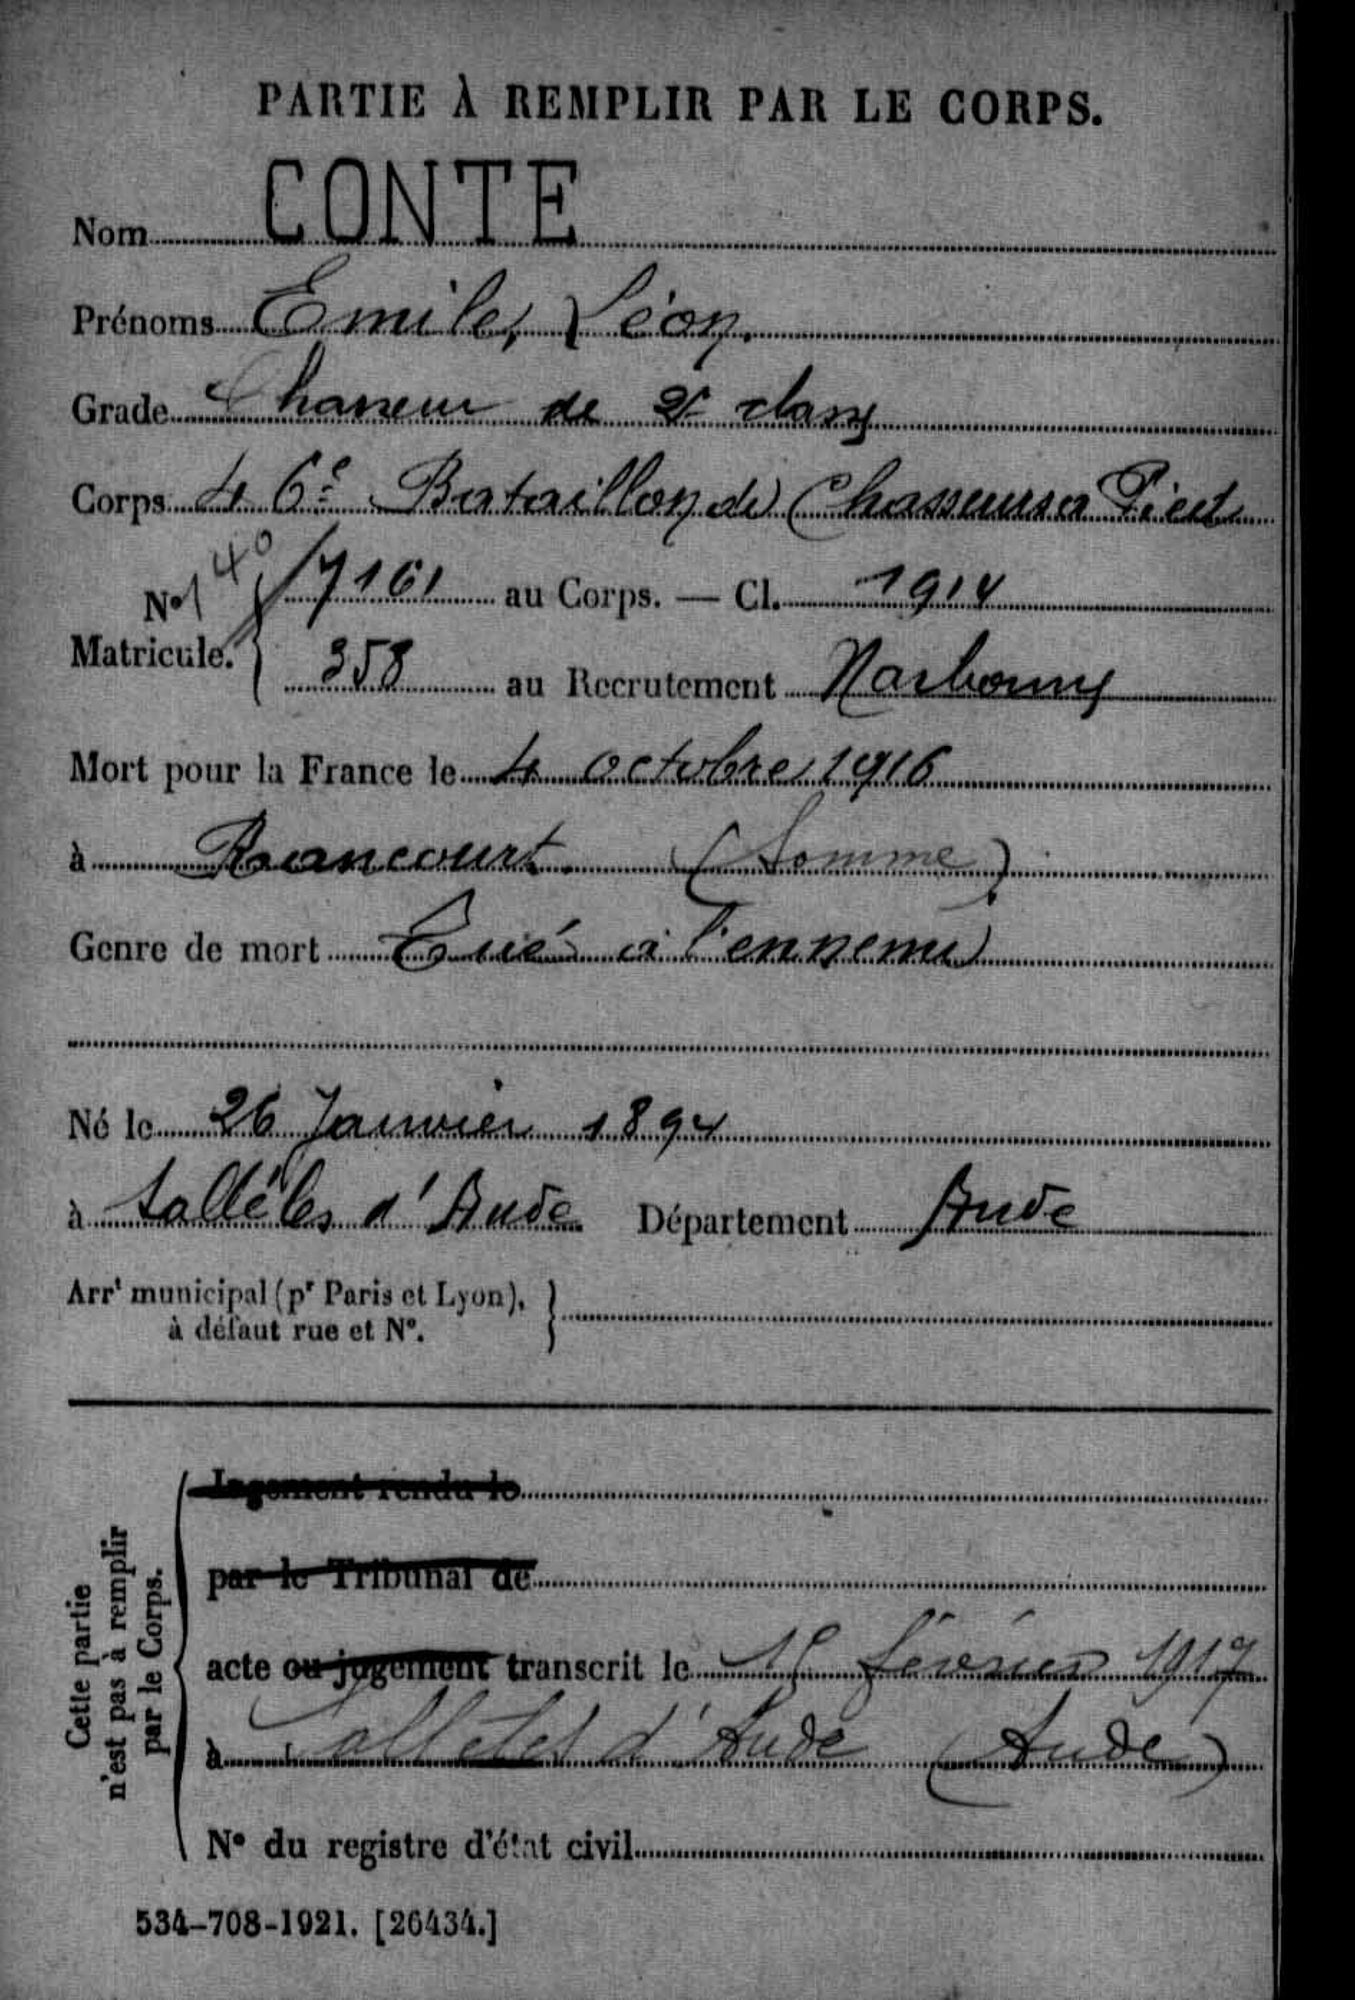 PARTIE À REMPLIR PAR LE CORPS.
Nom CONTE
Prénoms Emile, Léon.
Grade Chasseur de 2e classe
Corps 46e Bataillon de Chasseurs à Pied
140
N° Matricule. { 7161 au Corps. — Cl. 1914
358 au Recrutement Narbonne
Mort pour la France le 4 octobre 1916
à Rancourt (Somme)
Genre de mort Tué à l'ennemi
Né le 26 Janvier 1894
à Sallèles d'Aude Département Aude
Arrt municipal (pr Paris et Lyon),
à défaut rue et N°.
Cette partie
n'est pas à remplir
par le Corps.
Jugement rendu le
par le Tribunal de
acte ou jugement transcrit le février 1917
à Sallèles d'Aude (Aude)
N° du registre d'état civil
534-708-1921. [26434.]